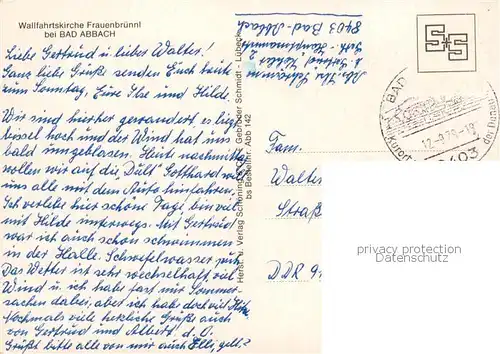 Wallfahrtskirche Frauenbrünnl
bei BAD ABBACH
Liebe Gertrud u. lieber Walter!
Ganz liebe Grüße senden Euch heute
zum Sonntag, Eure Ilse und Hilde,
Wir sind hierher gewandert es ging
bissel hoch und der Wind hat uns
bald umgeblasen. Heut nachmittag
wollen wir auf die Dult Gotthard will
uns alle mit dem Auto hinfahren,
Ich verlebe hier schöne Tage bin viel
mit Hilde unterwegs. Mit Gertrud
war ich auch schon schwimmen
in der Halle. Schwefelwasser
Das Wetter ist sehr wechselhaft viel
Wind u. ich habe fast nur Sommer-
sachen dabei, aber ich habe doch viel
Nochmals viele herzliche Grüße auch
von Gertrud und Albert d. O.
Grüßt bitte alle von mir auch Elli, gell?
Herst. u. Verlag Schöning & Co. + Gebrüder Schmidt - Lübeck
bs Bestellnr. Abb 142
Abs. Ilse
b. Gertrud
8403 Bad-Abbach
BAD
Kurort
12.-9.76-1
8403
Fam.
Walter
Straß
DDR 9
privacy protection
Datenschutz